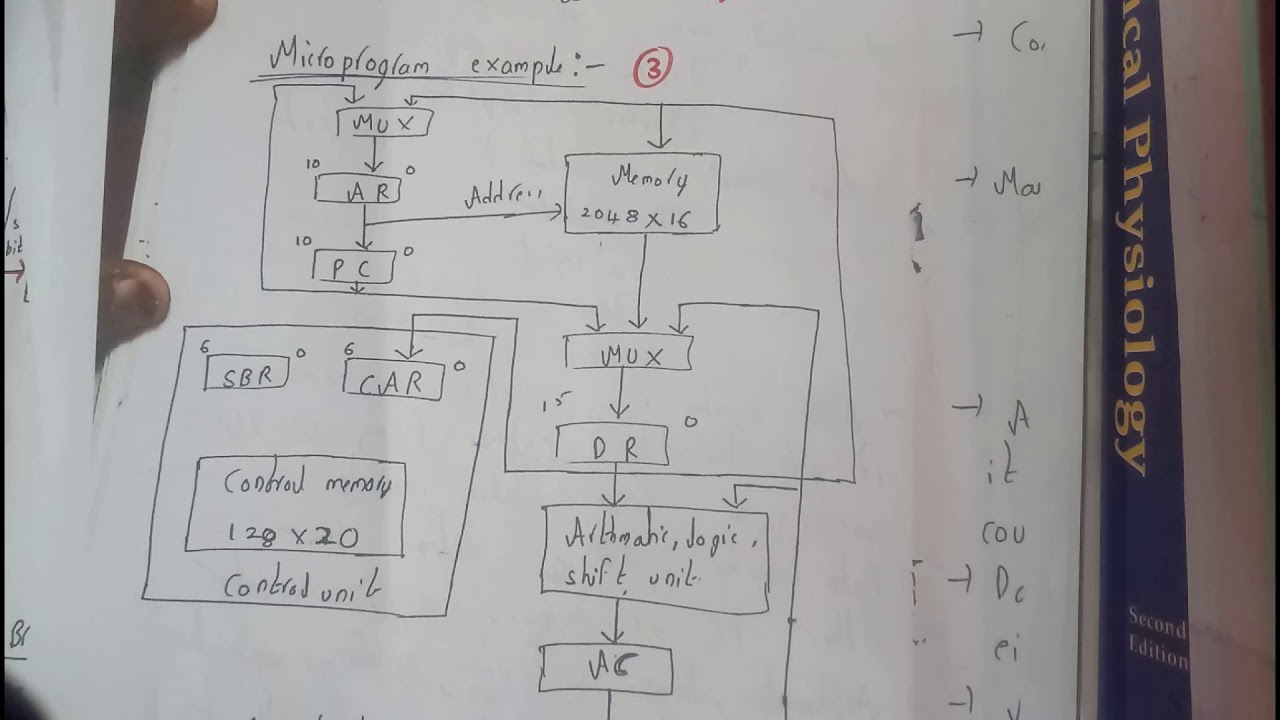 Microprogram example:- 3
MUX
10 AR 0
Address
Memory
2048 x 16
10 PC 0
MUX
6 SBR 0
6 CAR 0
15 DR 0
Control memory
128 x 20
Control unit
Arthmatic, logic,
shift unit
AC
bit
Br
→ Co
→ Ma
→ A
it
cou
→ Dc
ei
→
ical Physiology
Second
Edition